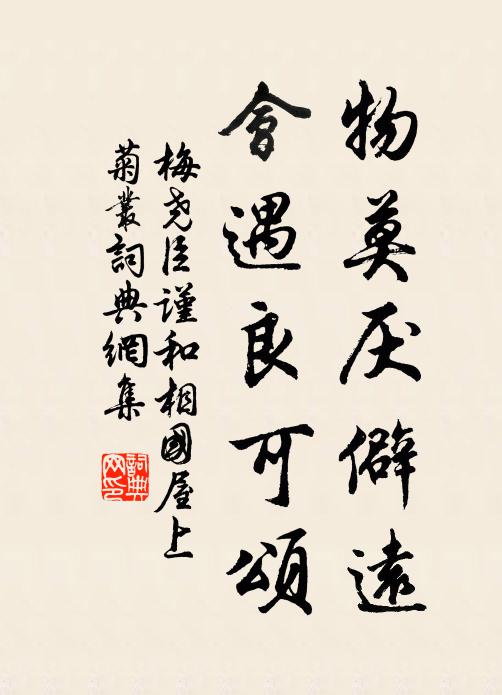 物莫厌僻遠
會遇良可頌
梅尧臣谨和相國屋上
菊叢詞典網集
詞典
网印